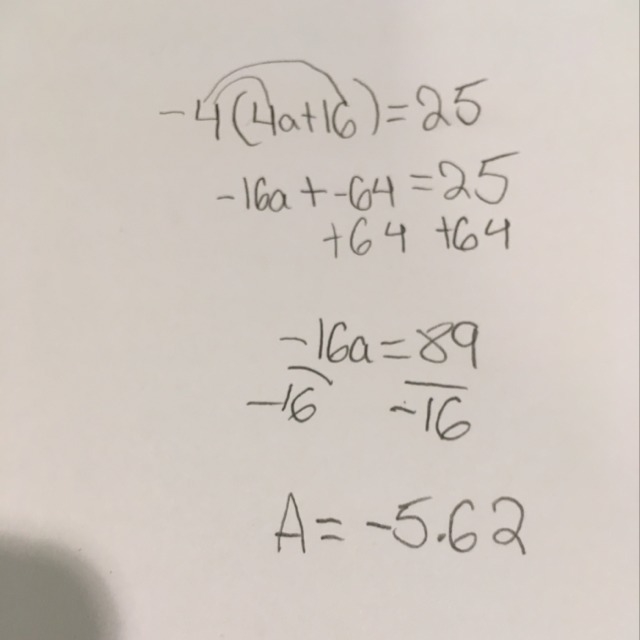 -4(4a+16)=25
-16a+-64=25
+64 +64
-16a=89
-16 -16
A=-5.62